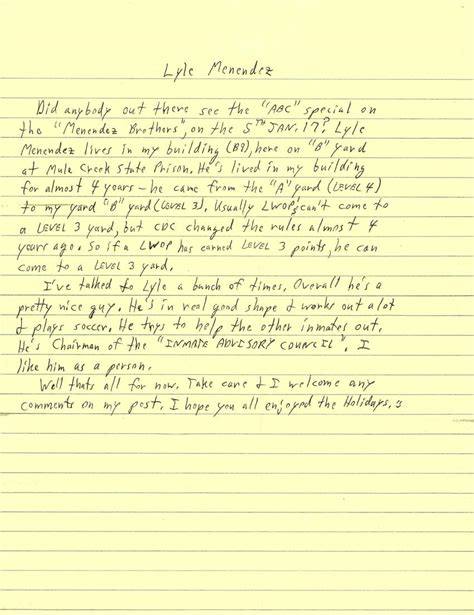 Lyle Menendez
Did anybody out there see the "ABC" special on
the "Menendez Brothers", on the 5TH JAN. 17? Lyle
Menendez lives in my building (B9), here on "B" yard
at Mule Creek State Prison. He's lived in my building
for almost 4 years - he came from the "A" yard (LEVEL 4)
to my yard "B" yard (LEVEL 3). Usually LWOP's can't come to
a LEVEL 3 yard, but CDC changed the rules almost 4
years ago. So if a LWOP has earned LEVEL 3 points, he can
come to a LEVEL 3 yard.
I've talked to Lyle a bunch of times. Overall he's a
pretty nice guy. He's in real good shape & works out alot
& plays soccer. He trys to help the other inmates out.
He's Chairman of the "INMATE ADVISORY COUNCIL". I
like him as a person.
Well thats all for now. Take care & I welcome any
comments on my post. I hope you all enjoyed the Holidays.